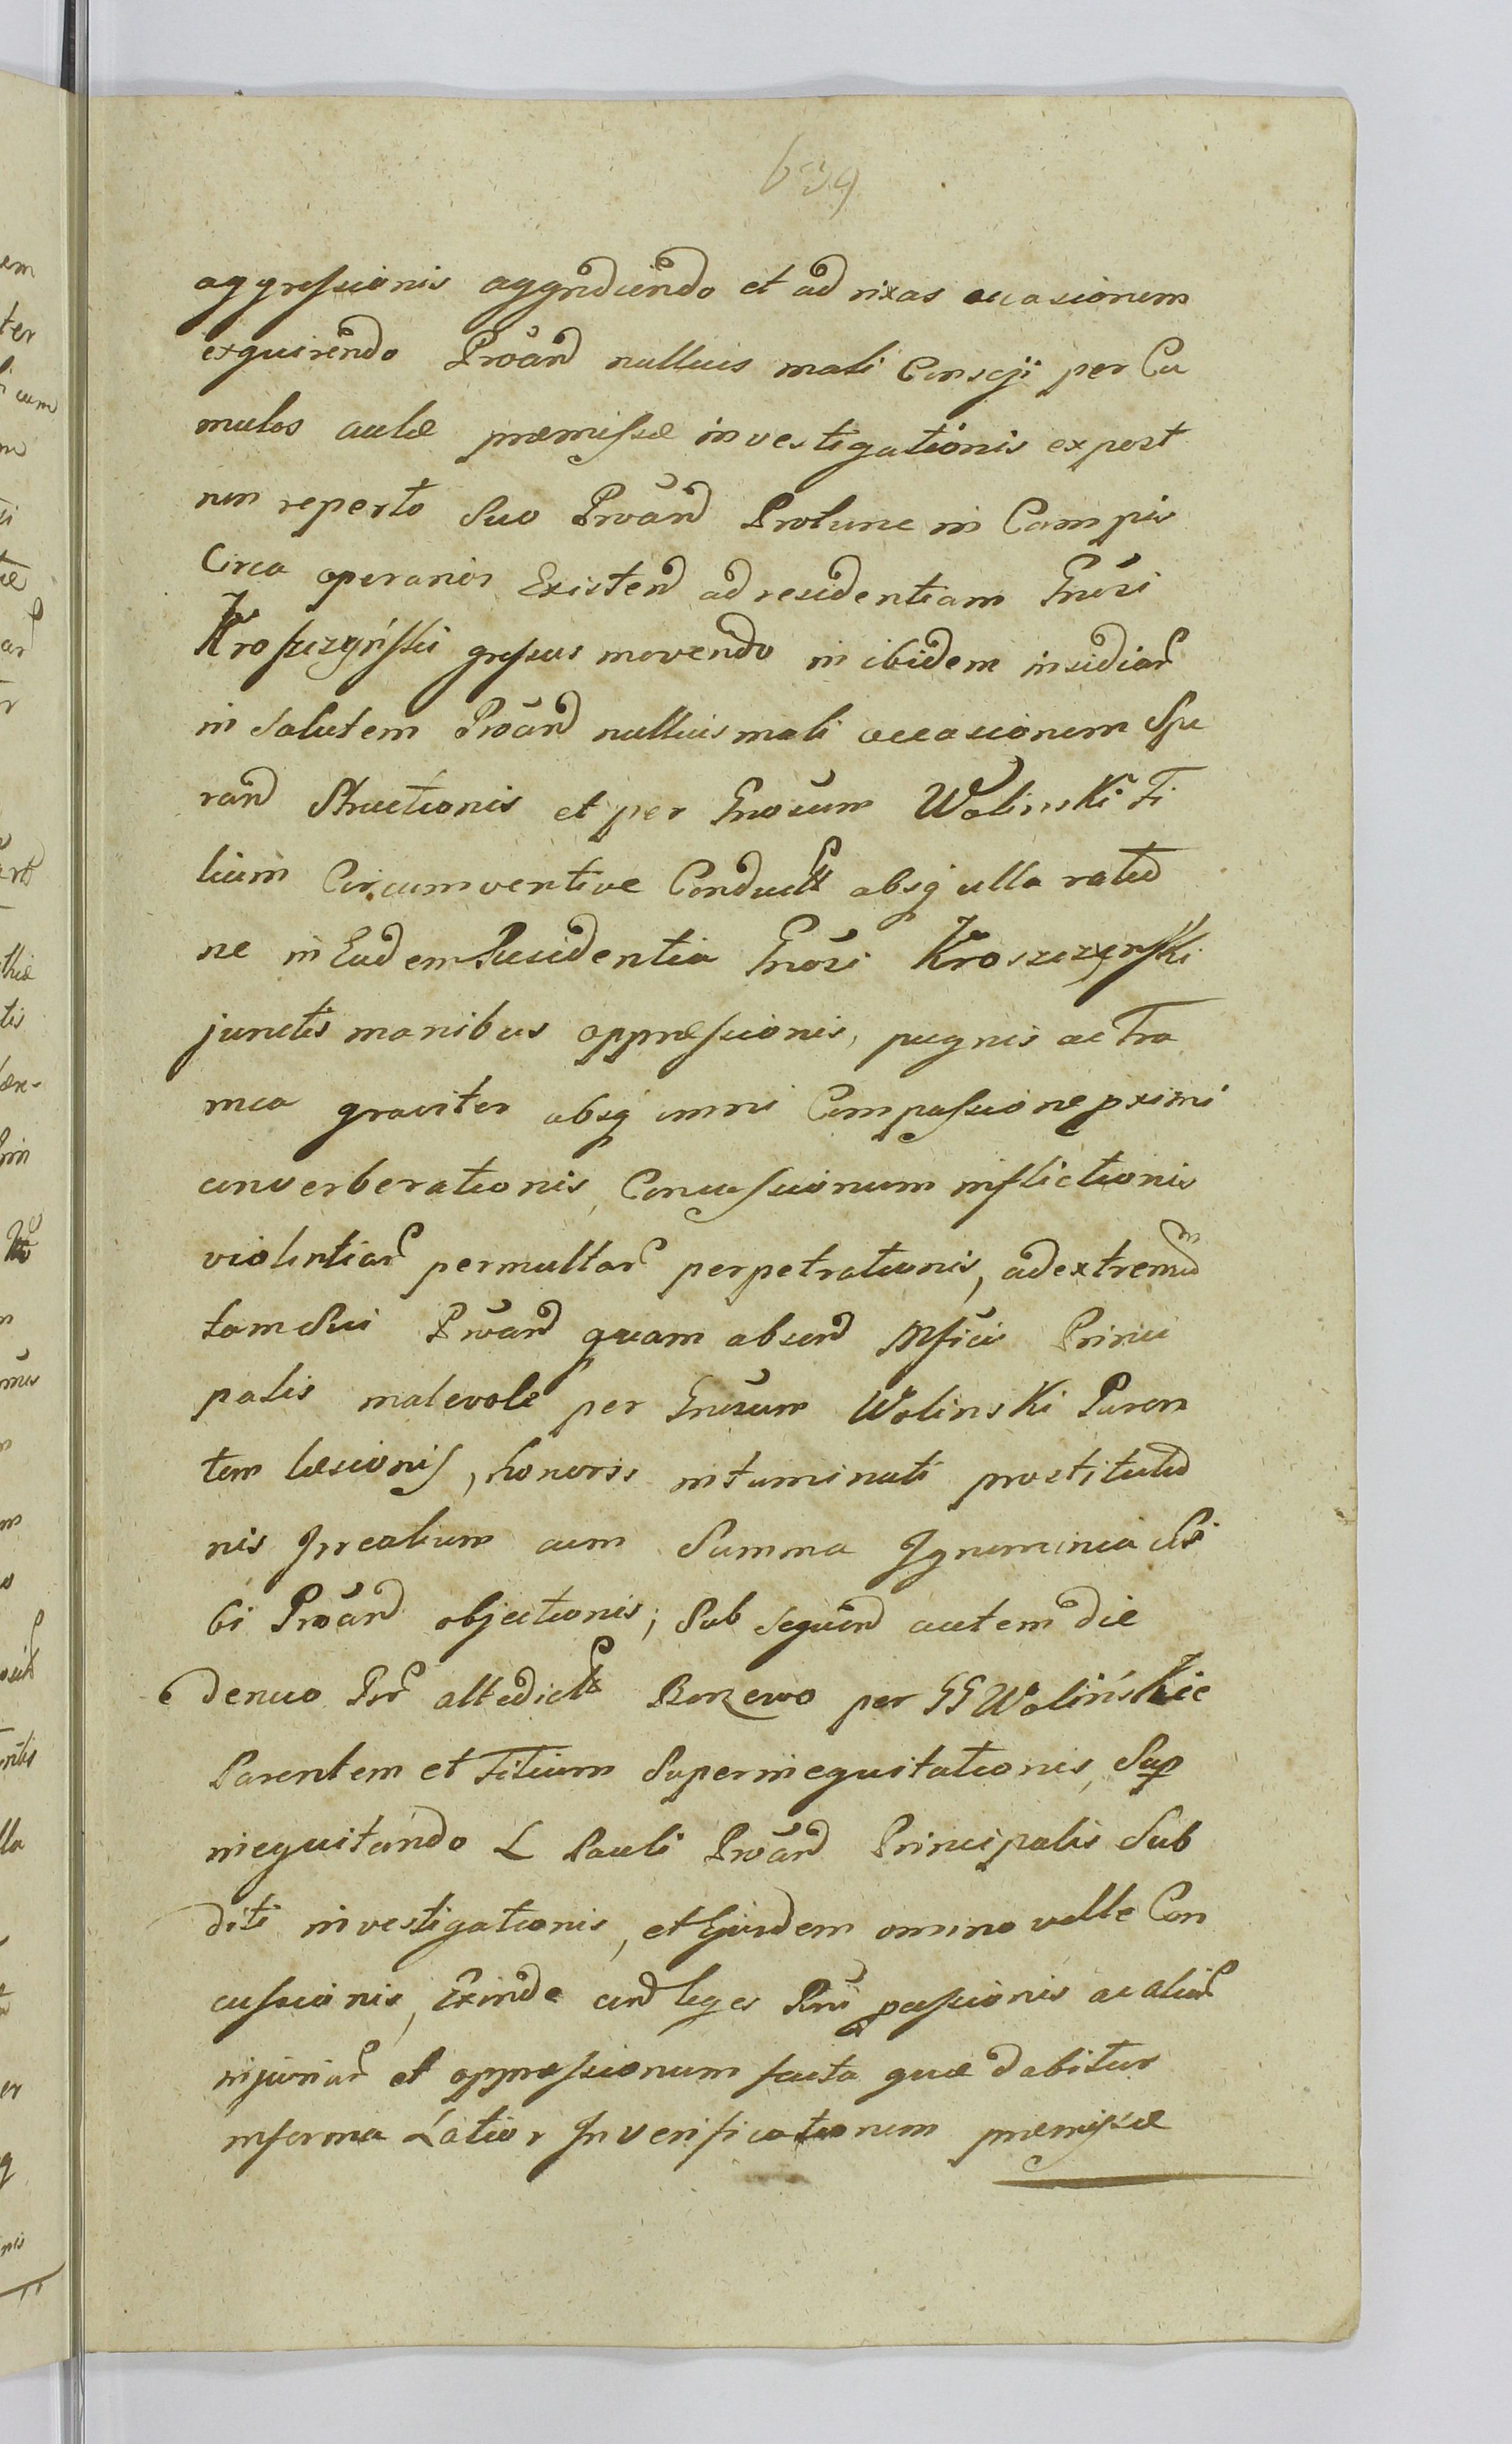 639
aggressionis aggrediendo et ad rixas occasionem
exquirendo Proãnd nullius mali Conscij per Cu
mulos aulæ præmissæ investigationis expost
non reperto Suo Proãnd Protunc in Campis
Circa operarios Existend ad residentiam Gnosi
Kroszczyński gressus movendo in ibidem insidiar
in Salutem Proãnd nullius mali occasionem Spe
rand Structionis et per Gnosum Wolinski Fi
lium Circumventive Conduct absq ulla ratio
ne in Eadem Residentia Gnosi Kroszczynski
junctis manibus oppressionis, pugnis ac Fra
mea graviter absq omni Compassione pximi
converberationis, Concussionum inflictionis
violentiar permultar perpetrationis, ad extremum
tam Sui Proãnd quam absend Mfici Princi
palis malevole per Gnosum Wolinski Paren
tem læsionis, honoris intaminati prostitutio
nis Irrealium cum Summa Ignominia Si
bi Proãnd objectionis; Sub sequend autem die
denuo Pr altedict Borzewo per GG Wolińskie
Parentem et Filium Superinequitationis, Sup
inequitando L Pauli Proãnd Principalis Sub
diti investigationis, et Ejusdem omnino velle Con
cussionis, Exinde cend leges Rni passionis ac aliar
injuriar et oppressionum facta quæ dabitur
informa Latior In verificationem præmissæ